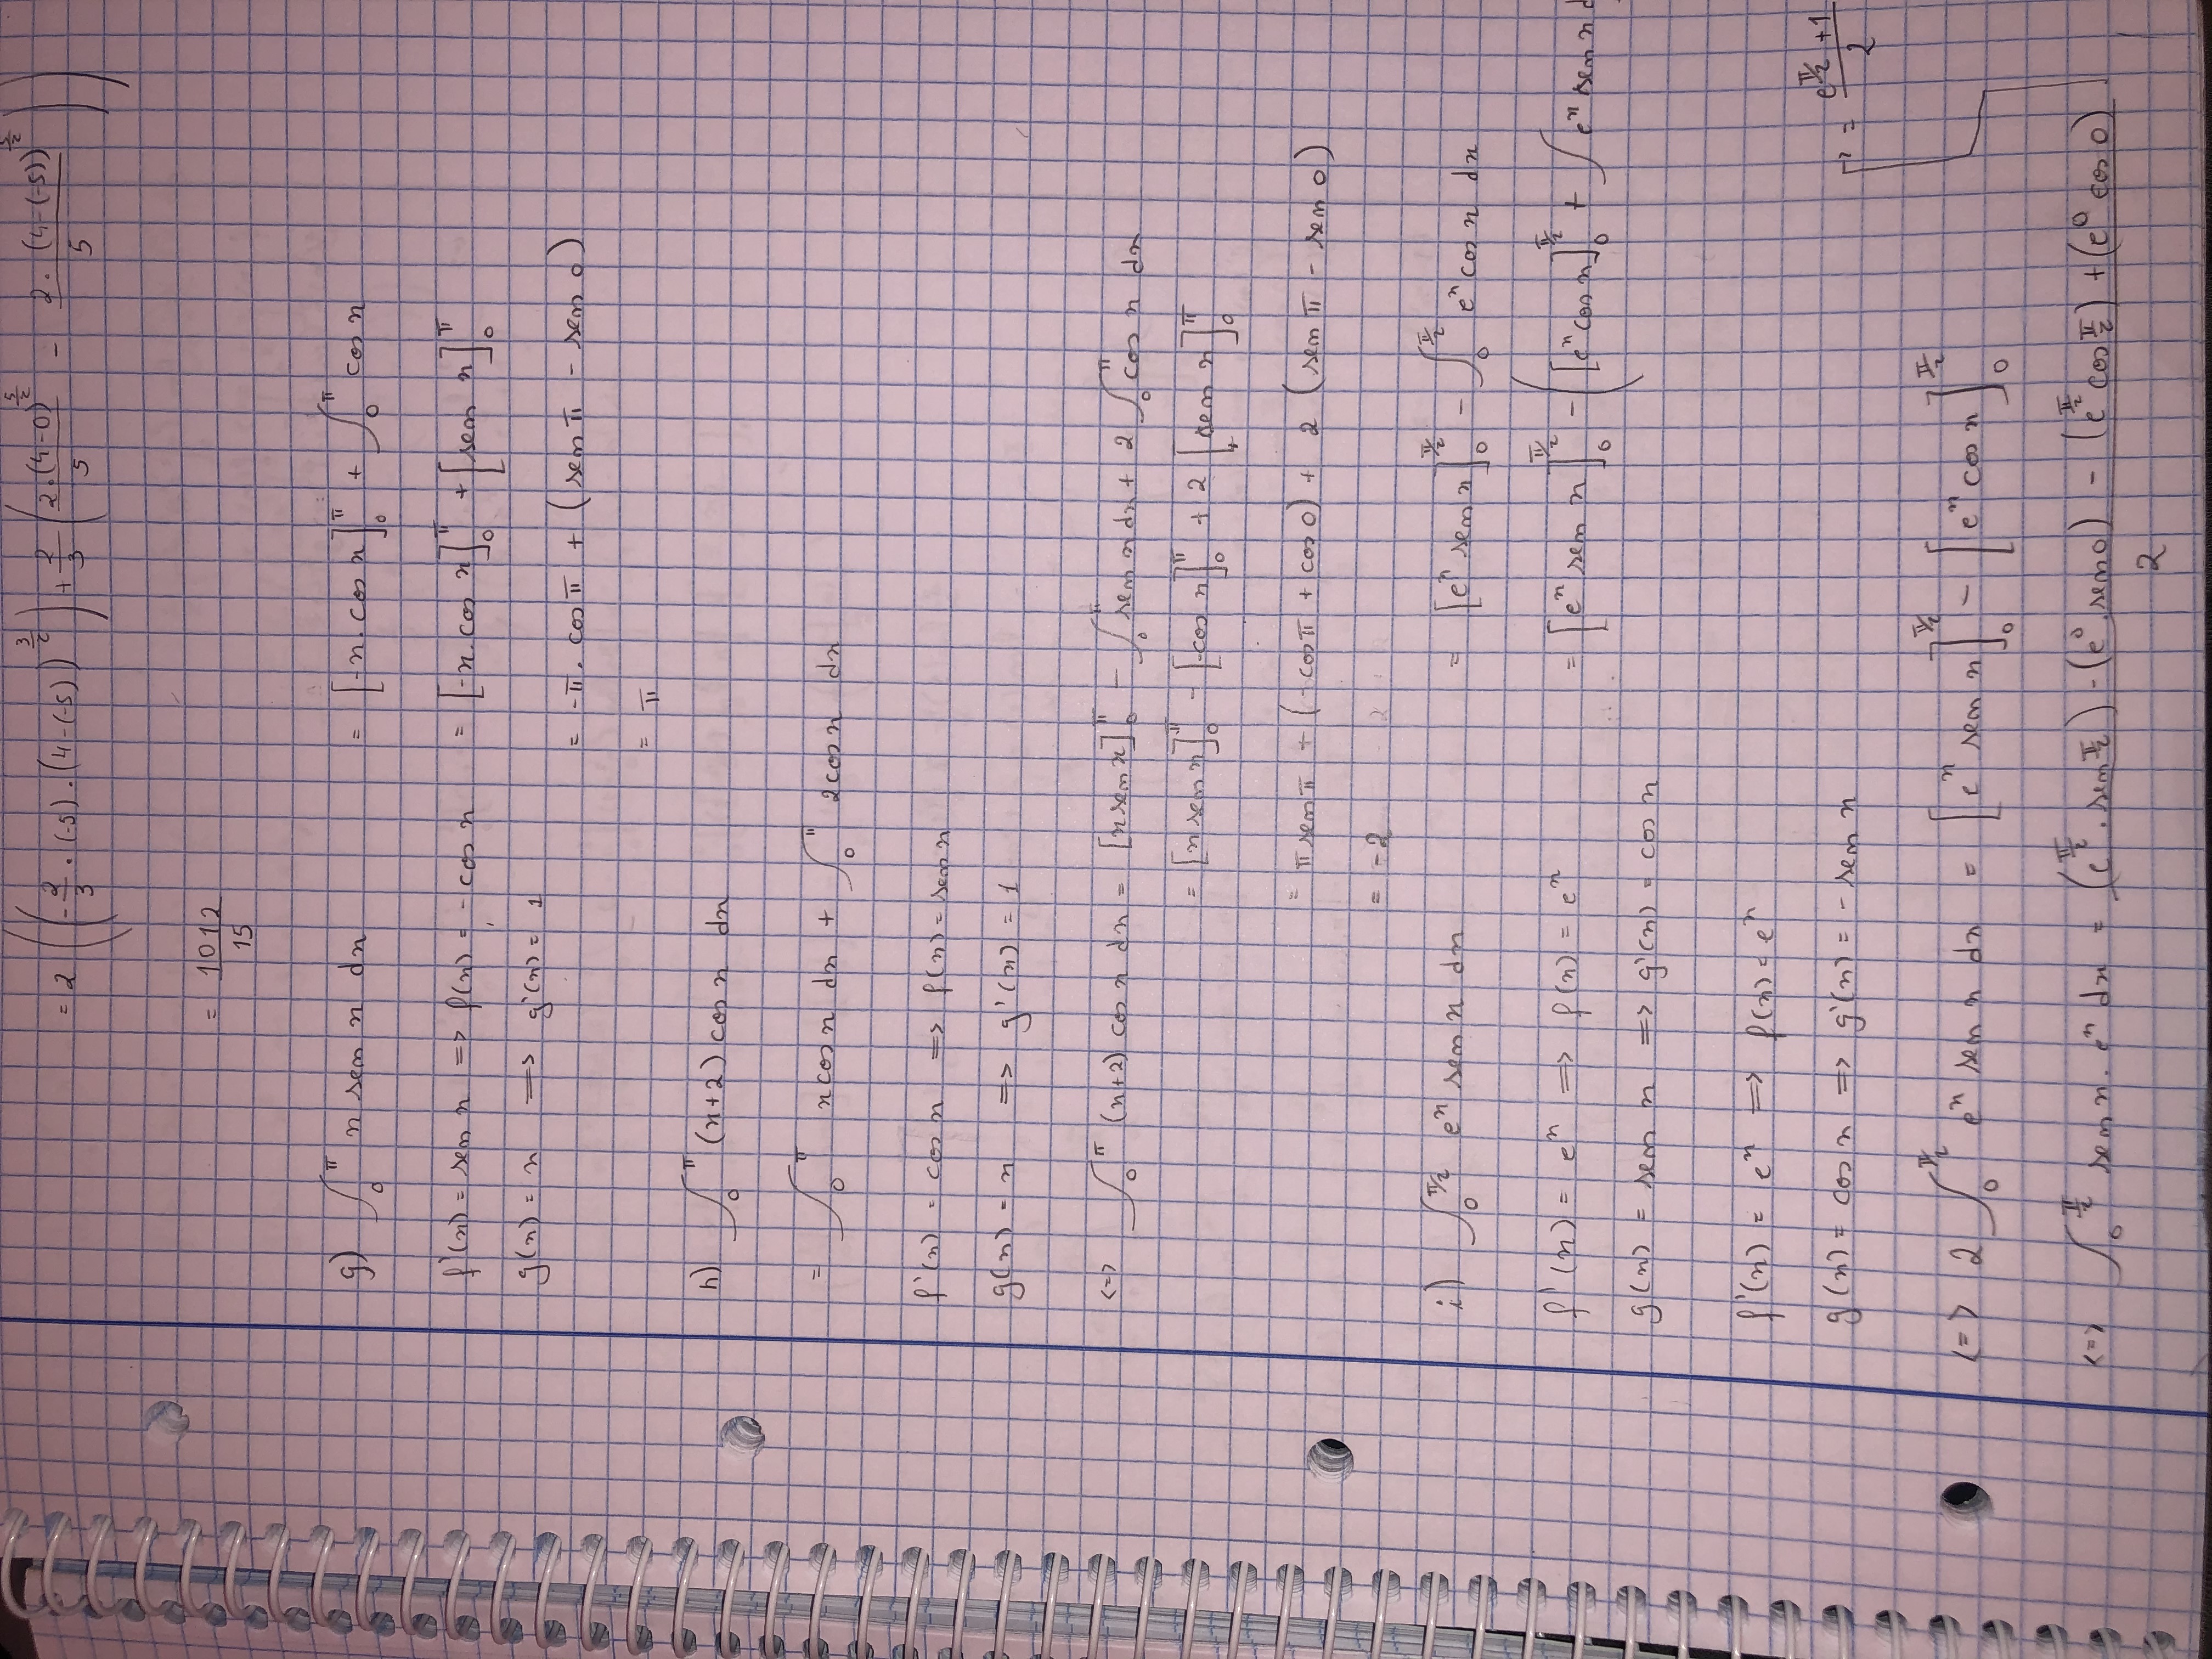 = 2 ((-2/3 · (-5) · (4-(-5))^(3/2)) + 2/3 (2·(4-0)^(5/2)/5 - 2·(4-(-5))^(5/2)/5))
= 1012/15
g) ∫_0^π x sen x dx = [-x·cos x]_0^π + ∫_0^π cos x
f'(x) = sen x => f(x) = -cos x = [-x·cos x]_0^π + [sen x]_0^π
g(x) = x => g'(x) = 1
= -π·cos π + (sen π - sen 0)
= π
h) ∫_0^π (x+2) cos x dx
= ∫_0^π x cos x dx + ∫_0^π 2cos x dx
f'(x) = cos x => f(x) = sen x
g(x) = x => g'(x) = 1
<=> ∫_0^π (x+2) cos x dx = [x sen x]_0^π - ∫_0^π sen x dx + 2 ∫_0^π cos x dx
= [x sen x]_0^π - [-cos x]_0^π + 2 [sen x]_0^π
= π sen π - (-cos π + cos 0) + 2 (sen π - sen 0)
= -2
i) ∫_0^(π/2) e^x sen x dx = [e^x sen x]_0^(π/2) - ∫_0^(π/2) e^x cos x dx
f'(x) = e^x => f(x) = e^x = [e^x sen x]_0^(π/2) - ([e^x cos x]_0^(π/2) + ∫ e^x sen x d
g(x) = sen x => g'(x) = cos x
f'(x) = e^x => f(x) = e^x
g(x) = cos x => g'(x) = -sen x
= (e^(π/2) + 1)/2
<=> 2 ∫_0^(π/2) e^x sen x dx = [e^x sen x]_0^(π/2) - [e^x cos x]_0^(π/2)
<=> ∫_0^(π/2) sen x · e^x dx = ((e^(π/2) · sen π/2) - (e^0 · sen 0) - (e^(π/2) cos π/2) + (e^0 cos 0))/2